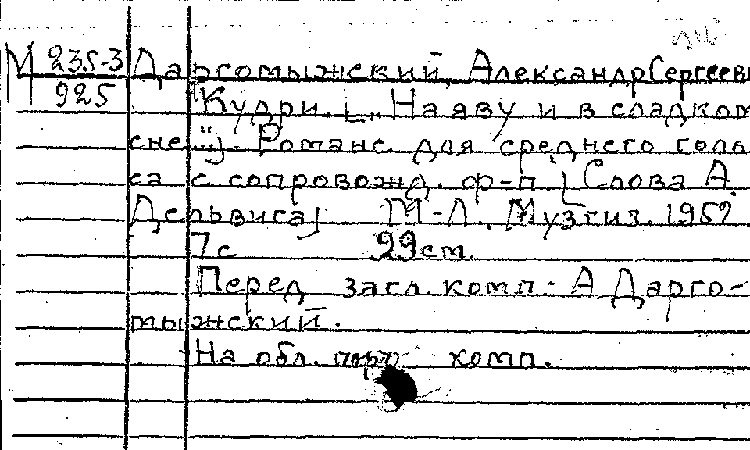 М 235-3 Даргомыжский, Александр Сергееви
925 Кудри. [„Наяву и в сладком
сне..."]. Романс для среднего голо-
са с сопровожд. ф-п. [Слова А.
Дельвига] М-Л. Музгиз. 1952
7 с 29 см.
Перед загл. комп. А Дарго-
мыжский.
На обл. портр комп.